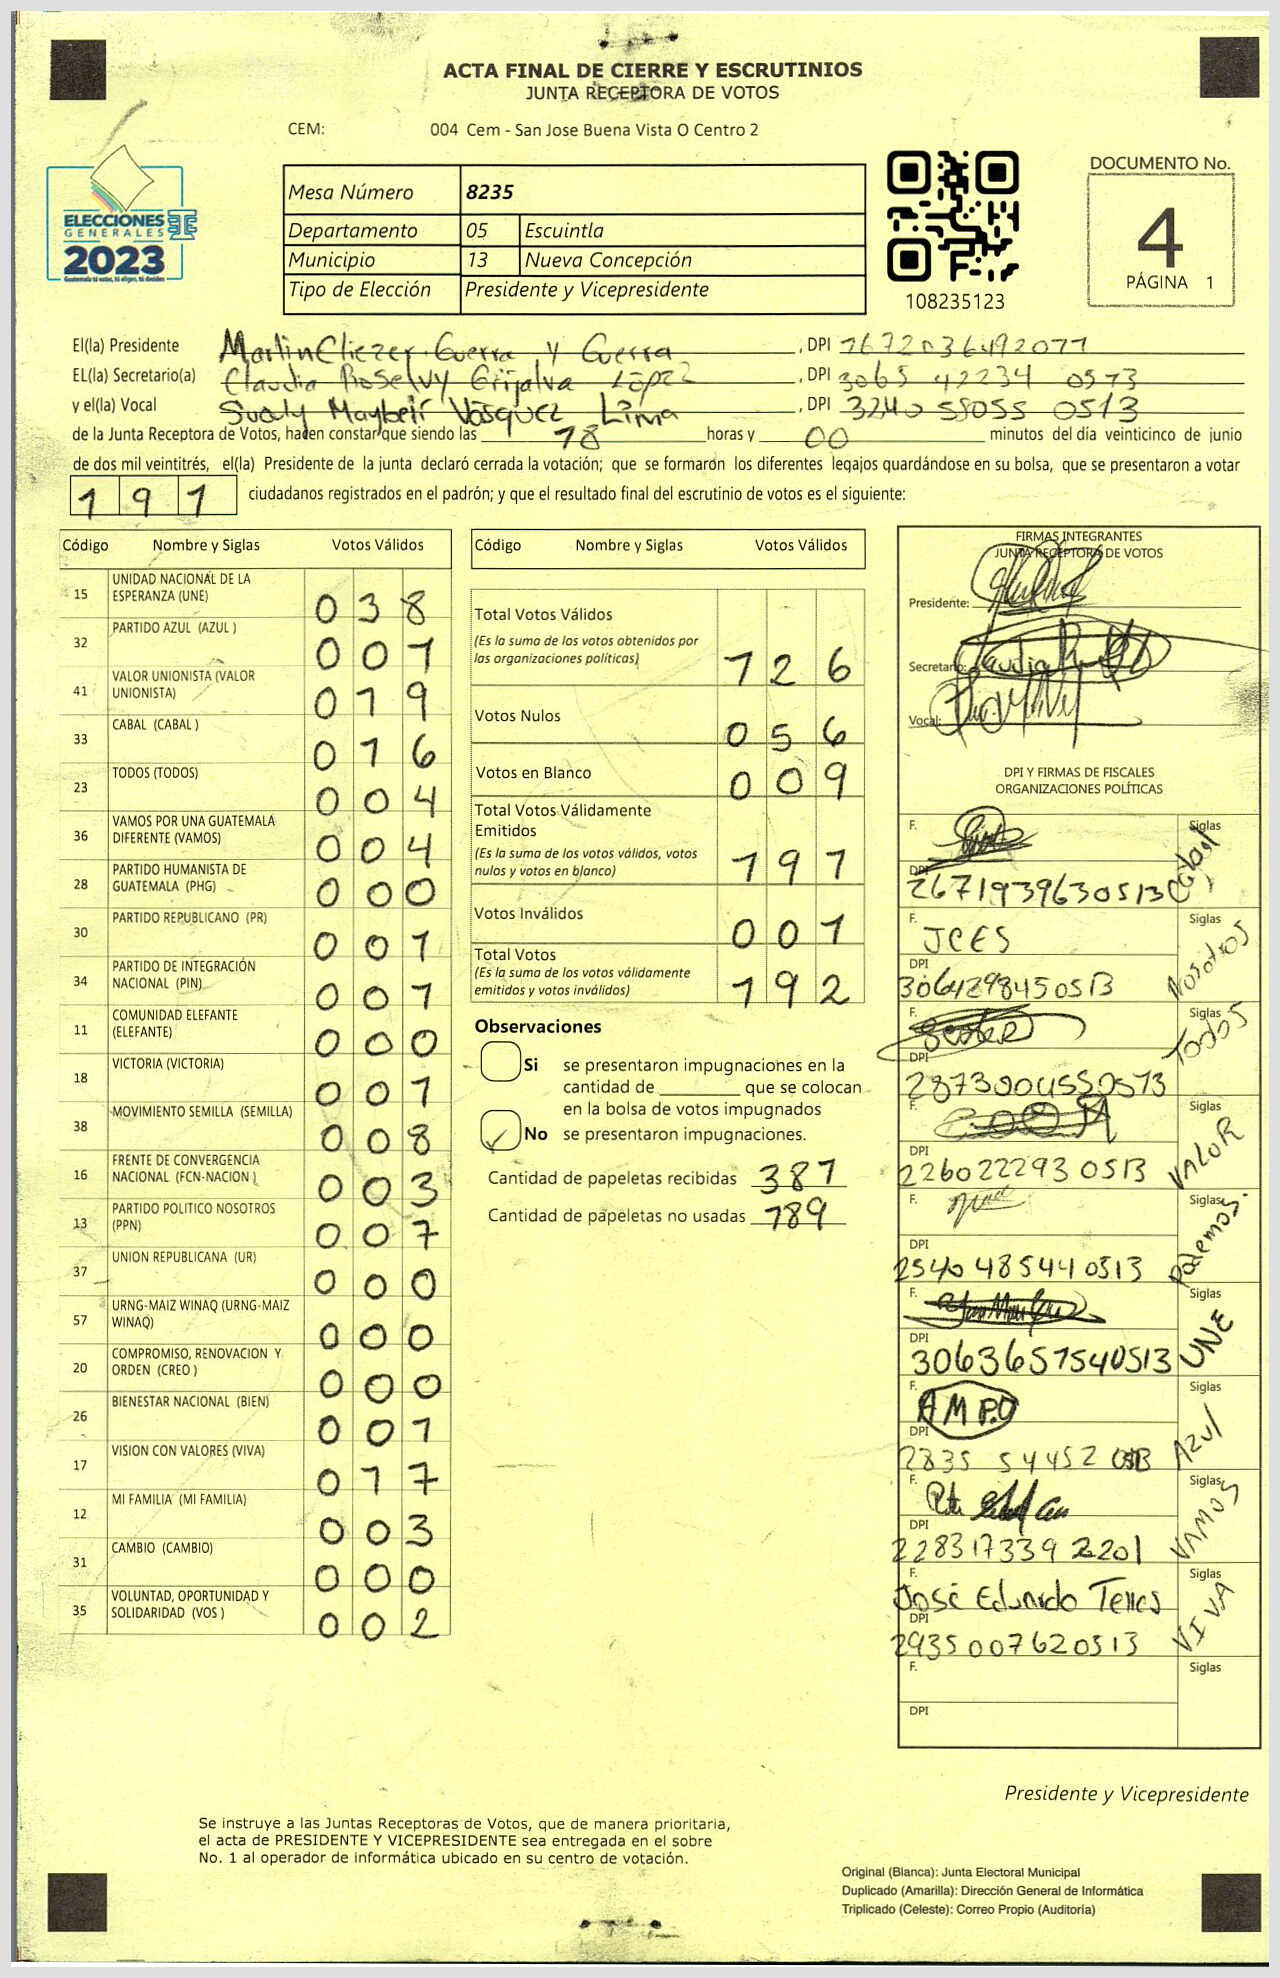 ACTA FINAL DE CIERRE Y ESCRUTINIOS
JUNTA RECEPTORA DE VOTOS
CEM: 004 Cem - San Jose Buena Vista O Centro 2
ELECCIONES
GENERALES
2023
Guatemala tú votas, tú eliges, tú decides
Mesa Número 8235
Departamento 05 Escuintla
Municipio 13 Nueva Concepción
Tipo de Elección Presidente y Vicepresidente
108235123
DOCUMENTO No.
4
PÁGINA 1
El(la) Presidente Martin Eliezer Guerra y Guerra , DPI
EL(la) Secretario(a) Claudia Roselvy Grijalva López , DPI 3065 42234 0513
y el(la) Vocal Vásquez Lima , DPI 3240 58055 0513
de la Junta Receptora de Votos, hacen constar que siendo las 18 horas y 00 minutos del día veinticinco de junio
de dos mil veintitrés, el(la) Presidente de la junta declaró cerrada la votación; que se formaron los diferentes legajos guardándose en su bolsa, que se presentaron a votar
191 ciudadanos registrados en el padrón; y que el resultado final del escrutinio de votos es el siguiente:
Código Nombre y Siglas Votos Válidos
15 UNIDAD NACIONAL DE LA ESPERANZA (UNE) 038
32 PARTIDO AZUL (AZUL ) 001
41 VALOR UNIONISTA (VALOR UNIONISTA) 019
33 CABAL (CABAL ) 016
23 TODOS (TODOS) 004
36 VAMOS POR UNA GUATEMALA DIFERENTE (VAMOS) 004
28 PARTIDO HUMANISTA DE GUATEMALA (PHG) 000
30 PARTIDO REPUBLICANO (PR) 001
34 PARTIDO DE INTEGRACIÓN NACIONAL (PIN) 001
11 COMUNIDAD ELEFANTE (ELEFANTE) 000
18 VICTORIA (VICTORIA) 001
38 MOVIMIENTO SEMILLA (SEMILLA) 008
16 FRENTE DE CONVERGENCIA NACIONAL (FCN-NACION ) 003
13 PARTIDO POLITICO NOSOTROS (PPN) 007
37 UNION REPUBLICANA (UR) 000
57 URNG-MAIZ WINAQ (URNG-MAIZ WINAQ) 000
20 COMPROMISO, RENOVACION Y ORDEN (CREO ) 000
26 BIENESTAR NACIONAL (BIEN) 001
17 VISION CON VALORES (VIVA) 017
12 MI FAMILIA (MI FAMILIA) 003
31 CAMBIO (CAMBIO) 000
35 VOLUNTAD, OPORTUNIDAD Y SOLIDARIDAD (VOS ) 002
Código Nombre y Siglas Votos Válidos
Total Votos Válidos
(Es la suma de los votos obtenidos por las organizaciones políticas) 126
Votos Nulos 056
Votos en Blanco 009
Total Votos Válidamente Emitidos
(Es la suma de los votos válidos, votos nulos y votos en blanco) 191
Votos Inválidos 001
Total Votos
(Es la suma de los votos válidamente emitidos y votos inválidos) 192
Observaciones
Si se presentaron impugnaciones en la
cantidad de ________ que se colocan
en la bolsa de votos impugnados
✓ No se presentaron impugnaciones.
Cantidad de papeletas recibidas 381
Cantidad de papeletas no usadas 189
FIRMAS INTEGRANTES
JUNTA RECEPTORA DE VOTOS
Presidente:
Secretario:
Vocal:
DPI Y FIRMAS DE FISCALES
ORGANIZACIONES POLÍTICAS
F. Siglas Cabal
DPI 2671939630513
F. JCES Siglas Nosotros
DPI 3064298450513
F. Siglas TODOS
DPI 2873004550513
F. Siglas VALOR
DPI 2260222930513
F. Siglas Podemos.
DPI 2540485440513
F. Siglas UNE
DPI 3063657540513
F. Siglas Azul
DPI 2835 54452 0513
F. Siglas VAMOS
DPI 2283173392201
F. José Eduardo Telles Siglas VIVA
DPI 2935007620513
F. Siglas
DPI
Presidente y Vicepresidente
Se instruye a las Juntas Receptoras de Votos, que de manera prioritaria,
el acta de PRESIDENTE Y VICEPRESIDENTE sea entregada en el sobre
No. 1 al operador de informática ubicado en su centro de votación.
Original (Blanca): Junta Electoral Municipal
Duplicado (Amarilla): Dirección General de Informática
Triplicado (Celeste): Correo Propio (Auditoría)